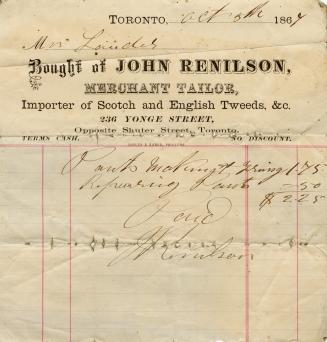 Toronto, Oct 8th 1867
Mr Lauder
Bought of JOHN RENILSON,
MERCHANT TAILOR,
Importer of Scotch and English Tweeds, &c.
236 YONGE STREET,
Opposite Shuter Street, Toronto.
TERMS CASH. NO DISCOUNT.
Pants Making & Triming 1.75
Repearing Pants 50
$2.25
Paid
J Renilson